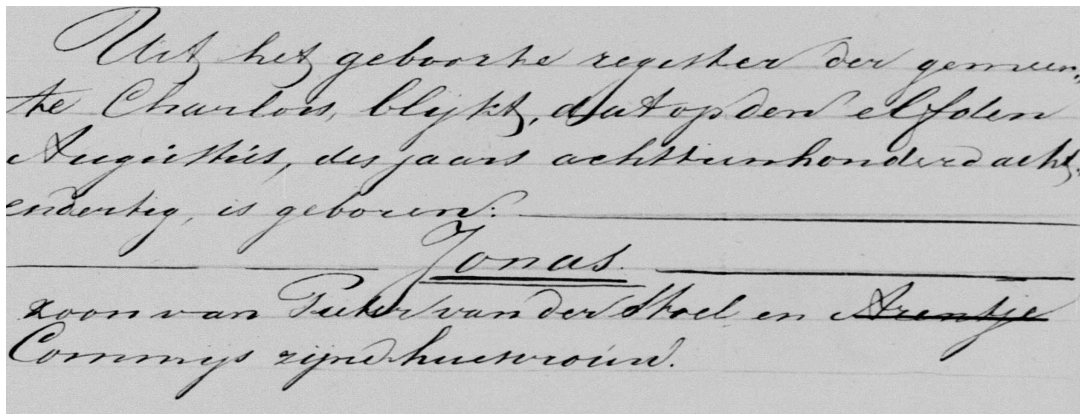 Uit het geboorte register der gemeen,
te Charlois, blijkt, dat op den elfden
Augustus, des jaars achttienhonderd acht,
endertig, is geboren:
Jonas.
zoon van Pieter van der Stoel en Arentje
Commijs zijne huisvrouw.